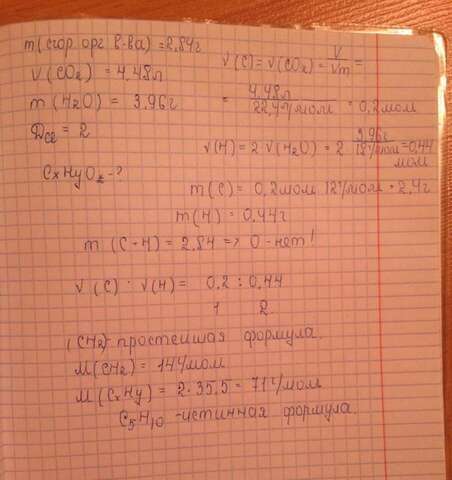 m(сгор. орг. в-ва) = 2,84г
V(CO₂) = 4,48л
m(H₂O) = 3,96г
D_Cl = 2
CxHyOz-?
ν(C) = ν(CO₂) = V/Vm =
= 4,48л / 22,4л/моль = 0,2моль
ν(H) = 2·ν(H₂O) = 2· 3,96г / 18г/моль = 0,44 моль
m(C) = 0,2моль·12г/моль = 2,4г
m(H) = 0,44г
m(C+H) = 2,84 => O-нет!
ν(C) : ν(H) = 0,2 : 0,44
1 2
(CH₂)- простейшая формула.
M(CH₂) = 14г/моль
M(CxHy) = 2·35,5 = 71г/моль
C₅H₁₀ -истинная формула.